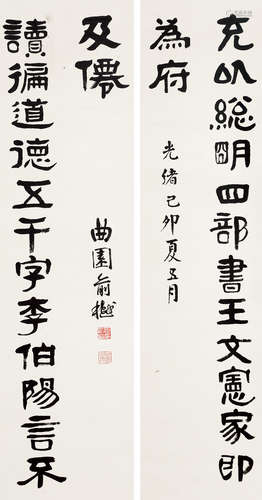 充以總明四部書王文憲家即
為府
光緒己卯夏五月
讀徧道德五千字李伯陽言不
及僊
曲園俞樾